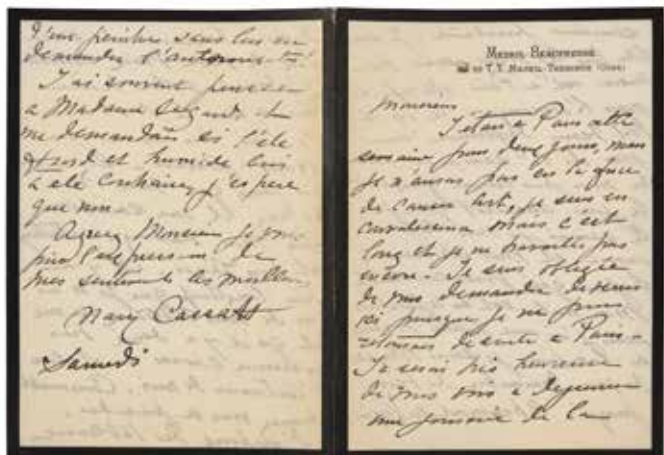 d'un peintre sans lui en
demander l'autorisation
J'ai souvent pensé
a Madame Segard, et
me demandant si l'été
froid et humide lui
a été contraire, j'espere
que non
Agreez Monsieur je vous
prie l'expression de
mes sentiments les meilleurs
Mary Cassatt
Samedi
Mesnil Beaufresne
T.Y. Mesnil-Theribus (Oise)
Monsieur
J'étais a Paris cette
semaine pour deux jours, mais
je n'aurais pas eu la force
de causer art, je suis en
convalescence mais c'est
long et je ne travaille pas
encore. Je suis obligée
de vous demander de venir
ici puisque je ne puis
retourner de suite a Paris.
Je serai très heureuse
de vous voir a dejeuner
une journée de la